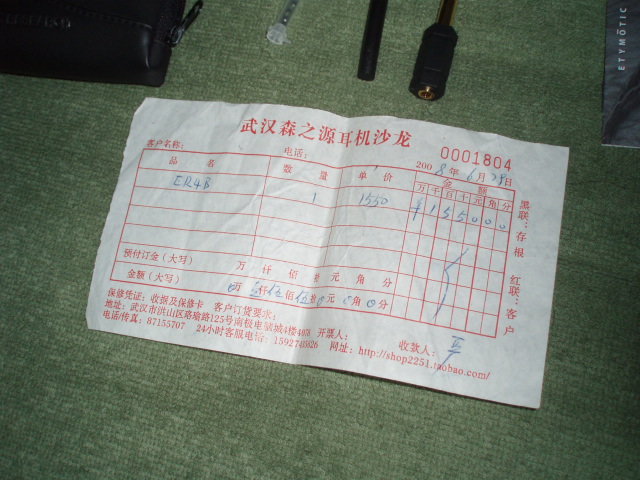 ETYMŌTIC
武汉森之源耳机沙龙
0001804
客户名称： 电话： 2008年6月28日
品 名 数 量 单 价 金 额
万 千 百 十 元 角 分
ER4B 1 1550 ¥ 1 5 5 0 0 0
预付订金（大写） 万 仟 佰 拾 元 角 分
金额（大写） 0万 仟伍佰伍拾0元0角0分
保修凭证：收据及保修卡 客户订货要求：
地址：武汉市洪山区珞瑜路125号南极电脑城4楼 开票人： 收款人：
电话/传真：87155707 24小时客服电话： 网址：http://shop2251.taobao.com/
黑联：存根 红联：客户